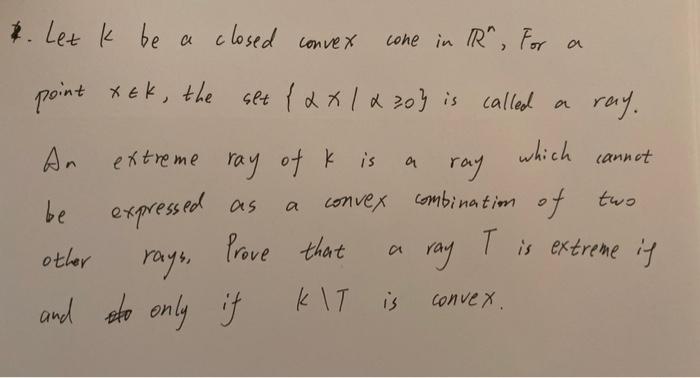 1. Let k be a closed convex cone in ℝⁿ, For a
point x ∈ k, the set { α x | α ≥ 0 } is called a ray.
An extreme ray of k is a ray which cannot
be expressed as a convex combination of two
other rays. Prove that a ray T is extreme if
and only if k \ T is convex.